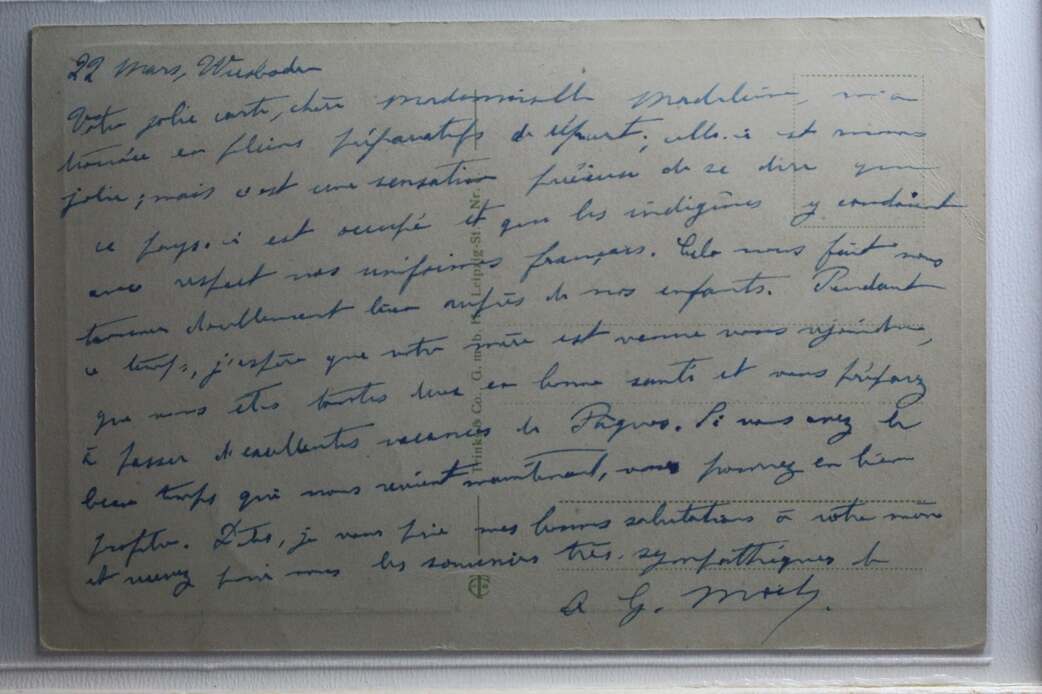 22 Mars, Wiesbaden
Votre jolie carte, chère Mademoiselle Madeleine, m'a
trouvée en pleins préparatifs de départ; celle-ci est moins
jolie; mais c'est une sensation précieuse de se dire que
ce pays-ci est occupé et que les indigènes y coudoient
avec respect nos uniformes français. Cela nous fait nous
trouver doublement bien auprès de nos enfants. Pendant
ce temps, j'espère que votre mère est venue vous rejoindre,
que vous êtes toutes deux en bonne santé et vous préparez
à passer d'excellentes vacances de Pâques. Si vous avez le
beau temps qui nous revient maintenant, vous pourrez en bien
profiter. Dites, je vous prie mes bonnes salutations à votre mère
et recevez pour vous les souvenirs très sympathiques de
A G.
Trinks & Co., G. m. b. H., Leipzig-St Nr.